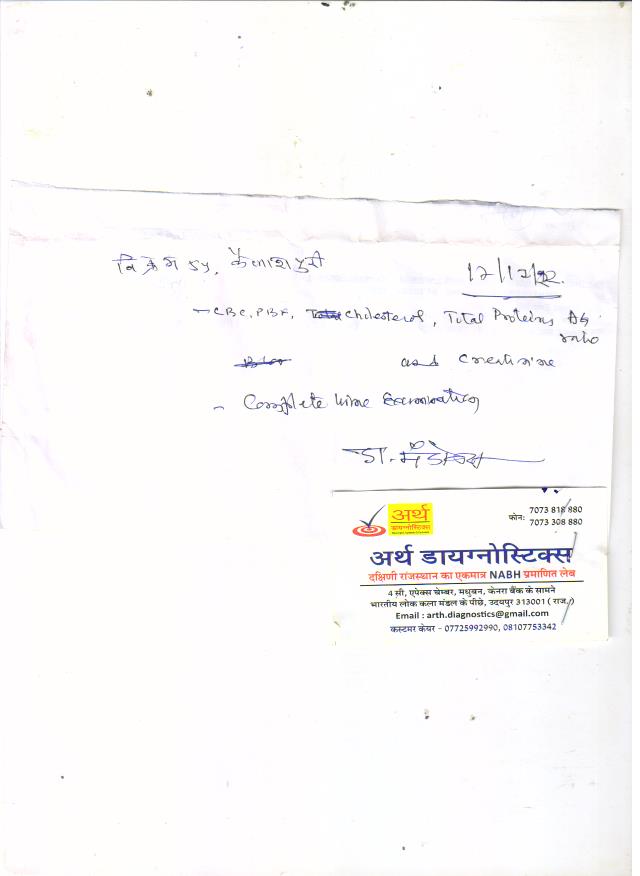 विक्रम 5y, कैलाशपुरी
12/12/22.
- CBC, PBF, Cholesterol, Total Proteins AG ratio
and Creatinine
- Complete Urine Examination
डा.
अर्थ
डायग्नोस्टिक्स
फोन: 7073 818 880
7073 308 880
अर्थ डायग्नोस्टिक्स
दक्षिणी राजस्थान का एकमात्र NABH प्रमाणित लेब
4 सी, एपेक्स चेम्बर, मधुबन, केनरा बैंक के सामने
भारतीय लोक कला मंडल के पीछे, उदयपुर 313001 ( राज.)
Email : arth.diagnostics@gmail.com
कस्टमर केयर - 07725992990, 08107753342